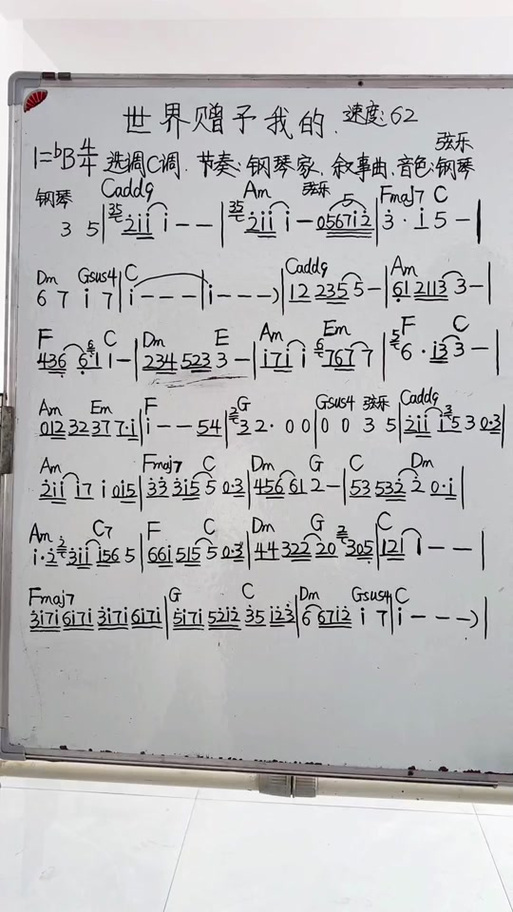 世界赠予我的. 速度:62
1=ᵇB 4/4 选调C调. 节奏:钢琴家. 叙事曲. 音色:钢琴 弦乐
钢琴 Cadd9 Am 弦乐 5 Fmaj7 C
3 5 | 35 2̇i̇i̇ i̇ - - | 35 2̇i̇i̇ i̇ - 0567i̇2̇ | 3̇ · i̇ 5 - |
Dm Gsus4 C Cadd9 Am
6 7 i̇ 7 | i̇ - - - | i̇ - - - ) | 12 235 5 - | 6̣1 2113 3 - |
F C Dm E Am Em F C
436 6 6·1 1 - | 234 523 3 - | i̇7i̇ i̇ 6 767 7 | 5 6 · i̇3 3 - |
Am Em F G Gsus4 弦乐 Cadd9
012 32 37 7·i̇ | i̇ - - 54 | 2 3 2· 0 0 | 0 0 3 5 | 2̇i̇i̇ i̇5 3 3 0·3 |
Am Fmaj7 C Dm G C Dm
2̇i̇i̇ i̇7 i̇ 0i̇5 | 3̇3̇ 3̇i̇5 5 0·3 | 456 61 2 - | 53 532̇ 2̇ 0·i̇ |
Am C7 F C Dm G C
i̇·2̇ 2 3̇i̇i̇ i̇56 5 | 66i̇ 5i̇5 5 0·3 | 44 322 20 2 305 | 121 1 - - |
Fmaj7 G C Dm Gsus4 C
3̇i̇7i̇ 6i̇7i̇ 3̇i̇7i̇ 6i̇7i̇ | 5i̇7i̇ 52̇i̇2̇ 3̇5 i̇2̇3̇ | 6 67i̇2̇ i̇ 7 | i̇ - - - ) |